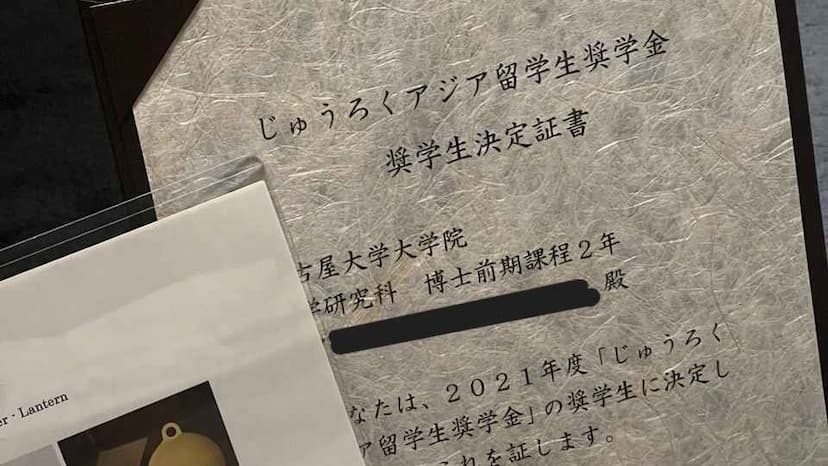 じゅうろくアジア留学生奨学金
奨学生決定証書
古屋大学大学院
学研究科 博士前期課程２年
殿
なたは、２０２１年度「じゅうろく
ア留学生奨学金」の奨学生に決定し
れを証します。
er · Lantern